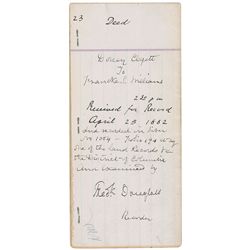 23
Deed
Dorsey Clagett
To
Williams
222 pm
Received for Record
April 25 1882
and recorded in Liber
No 1004 Folio 194 et seq
one of the Land Records for
the District of Columbia
and examined by
Fredk Douglass
Recorder